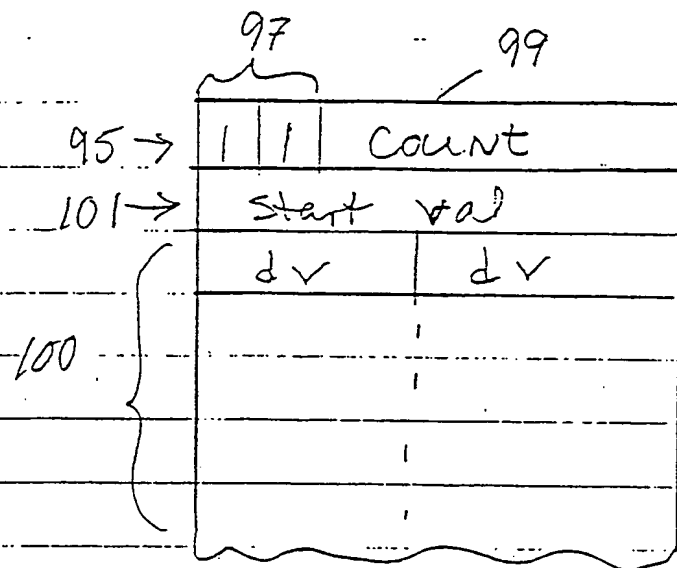 97 99
95 → 1 1 Count
101 → start val
dv dv
100